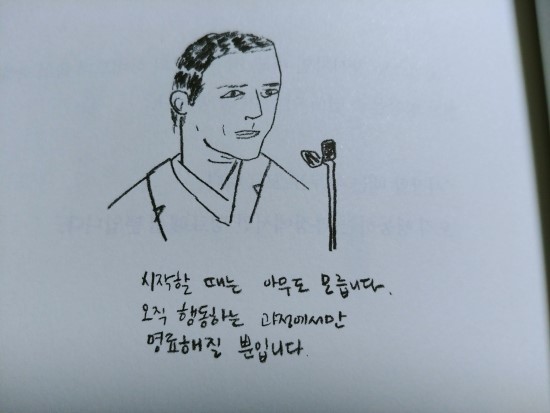 시작할 때는 아무도 모릅니다.
오직 행동하는 과정에서만
명료해질 뿐입니다.